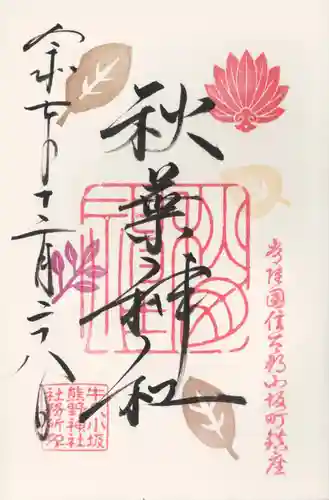 常陸国信太郡小坂町鎮座
秋葉神社
令和七年十二月二十八日
牛久小坂
熊野神社
社務所印